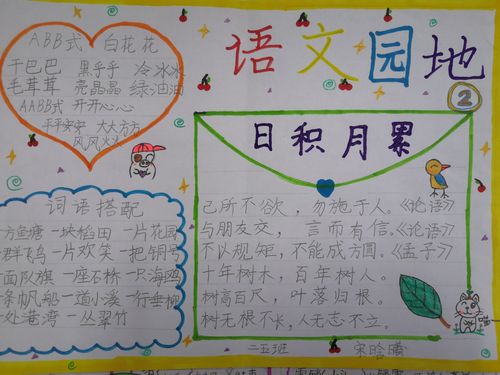 语文园地
2
ABB式 白花花
干巴巴 黑乎乎 冷冰冰
毛茸茸 亮晶晶 绿油油
AABB式 开开心心
平平安安 大大方方
风风火火
日积月累
己所不欲，勿施于人。《论语》
与朋友交，言而有信。《论语》
不以规矩，不能成方圆。《孟子》
十年树木，百年树人。
树高百尺，叶落归根。
树无根不长，人无志不立。
词语搭配
方鱼塘 一块稻田 一片花园
群飞鸟 一片欢笑 一把铜号
面队旗 一座石桥 一只海鸥
条帆船 一道小溪 一行垂柳
处港湾 一丛翠竹
二五班